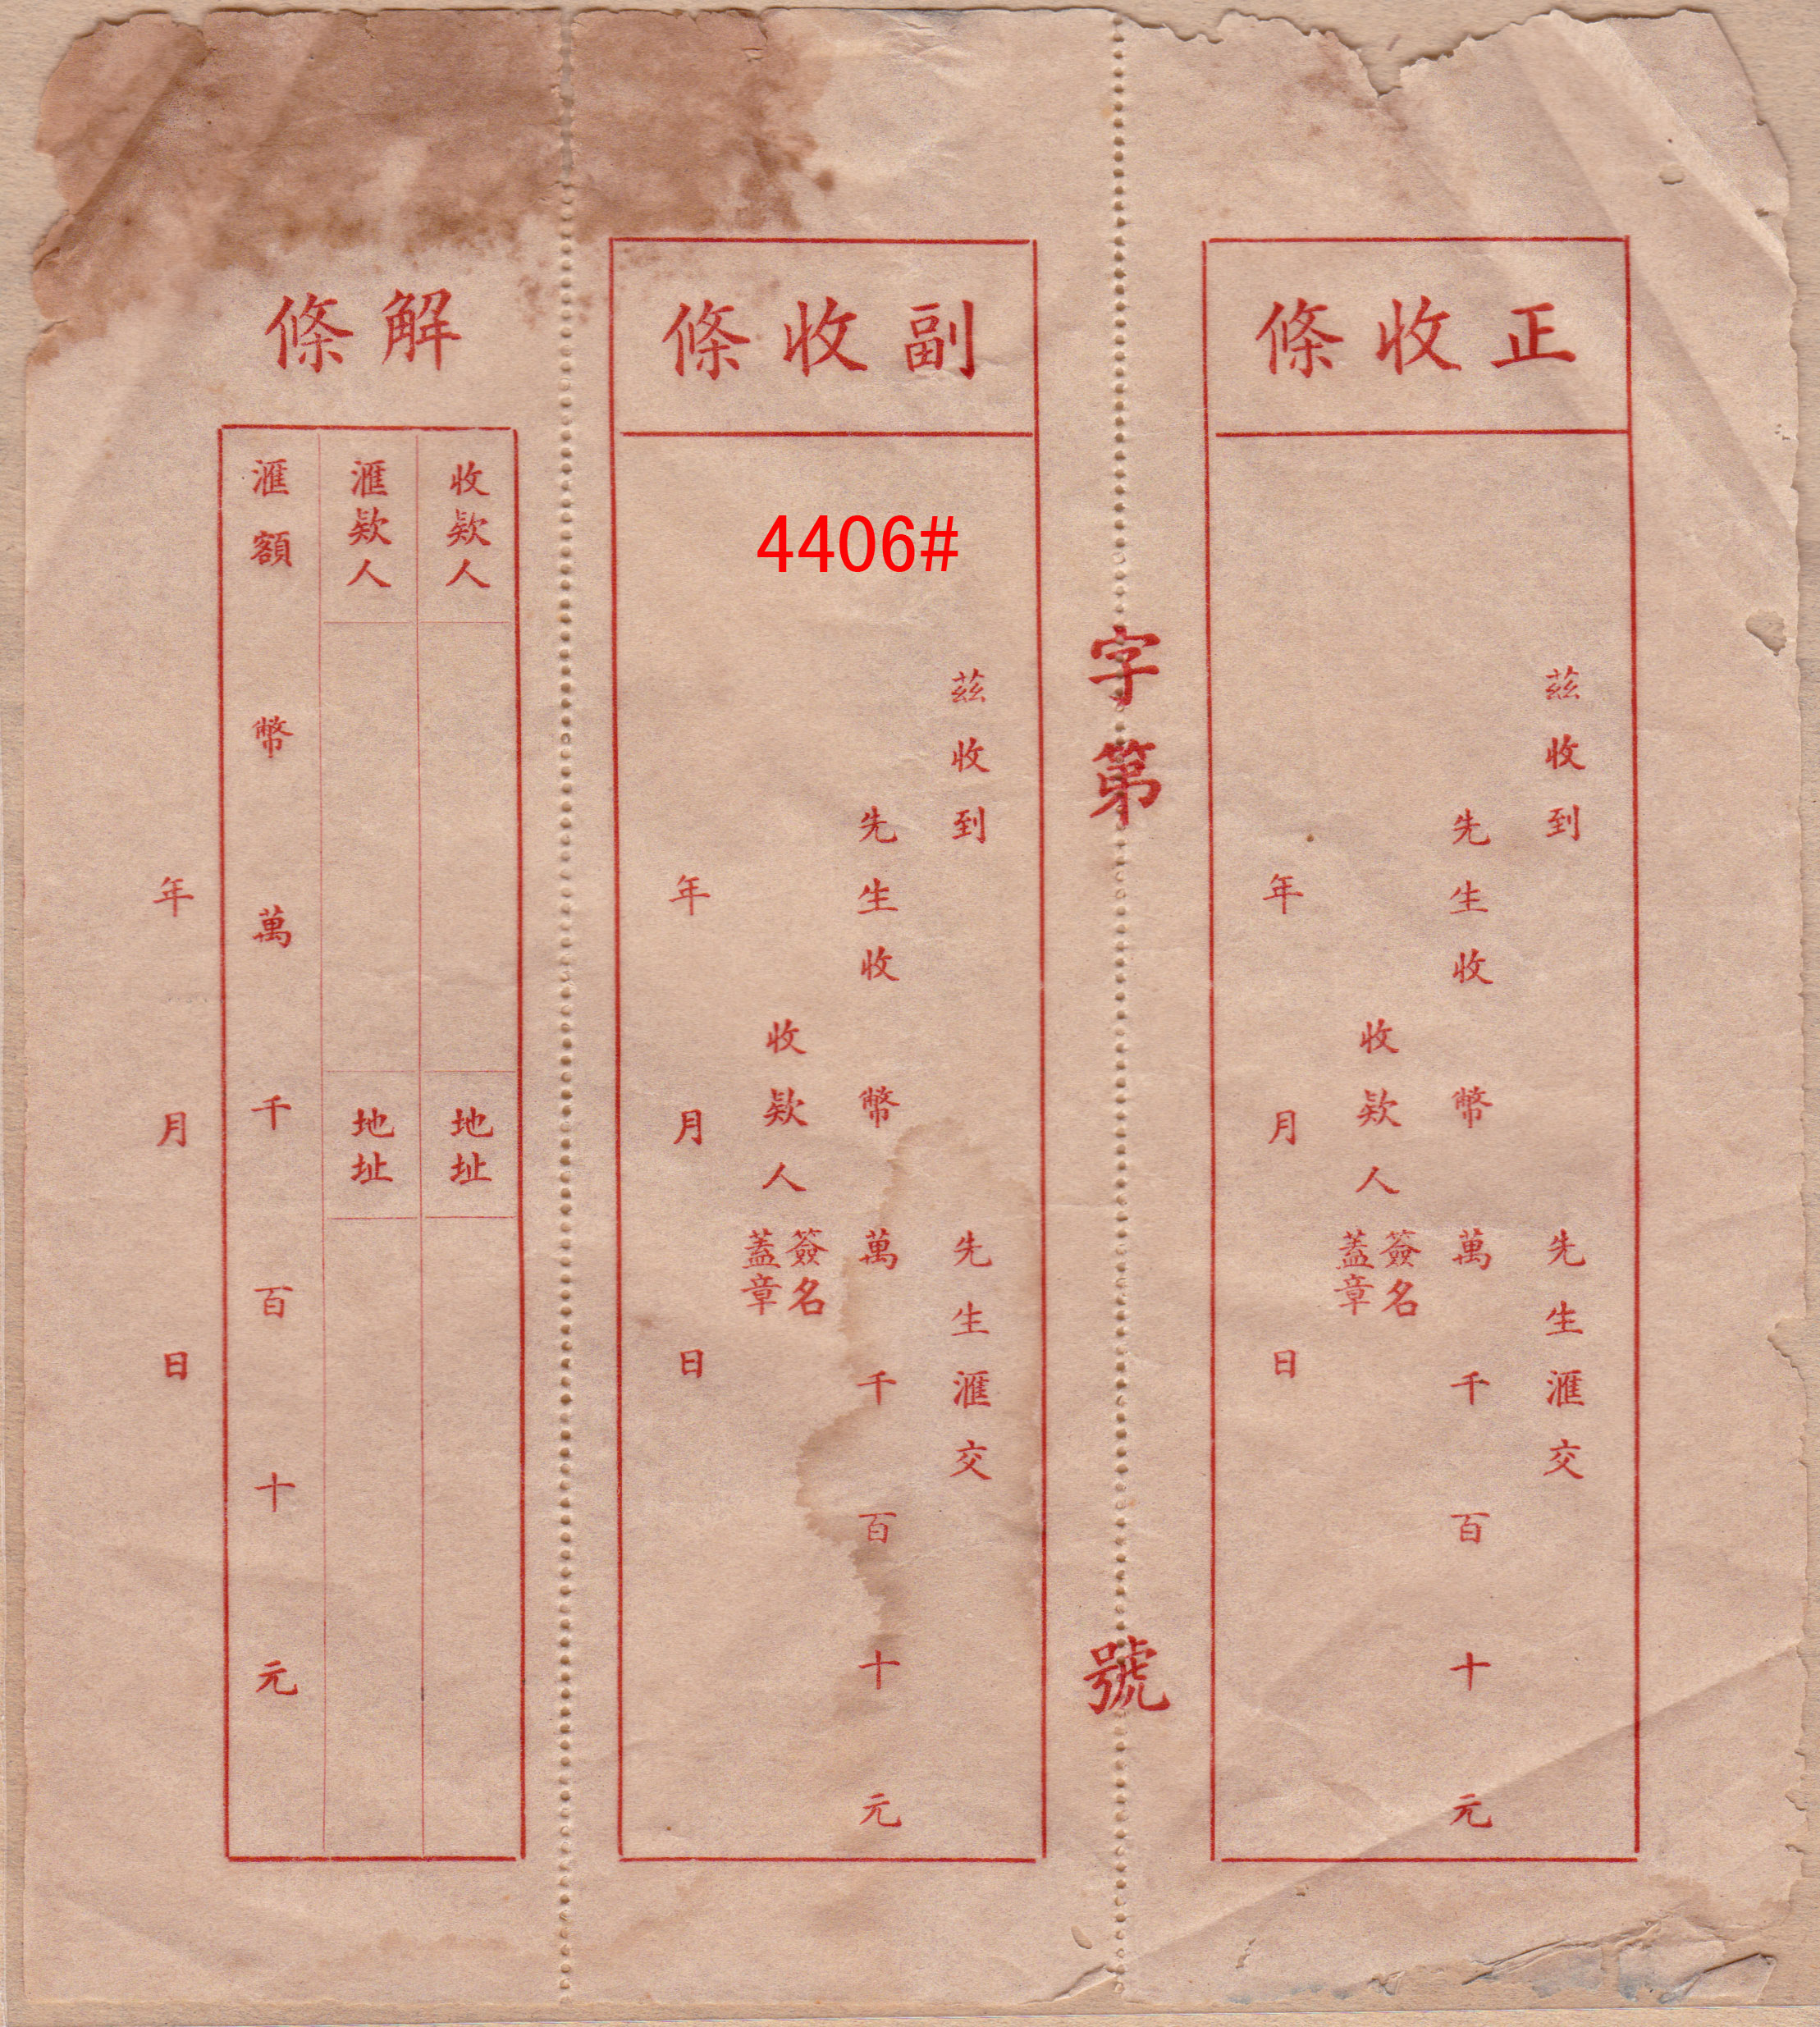 正收條
茲收到
先生滙交
先生收
幣
萬
千
百
十
元
收欵人
簽名
蓋章
年
月
日
字第
號
副收條
4406#
茲收到
先生滙交
先生收
幣
萬
千
百
十
元
收欵人
簽名
蓋章
年
月
日
解條
收欵人
地址
滙欵人
地址
滙額
幣
萬
千
百
十
元
年
月
日